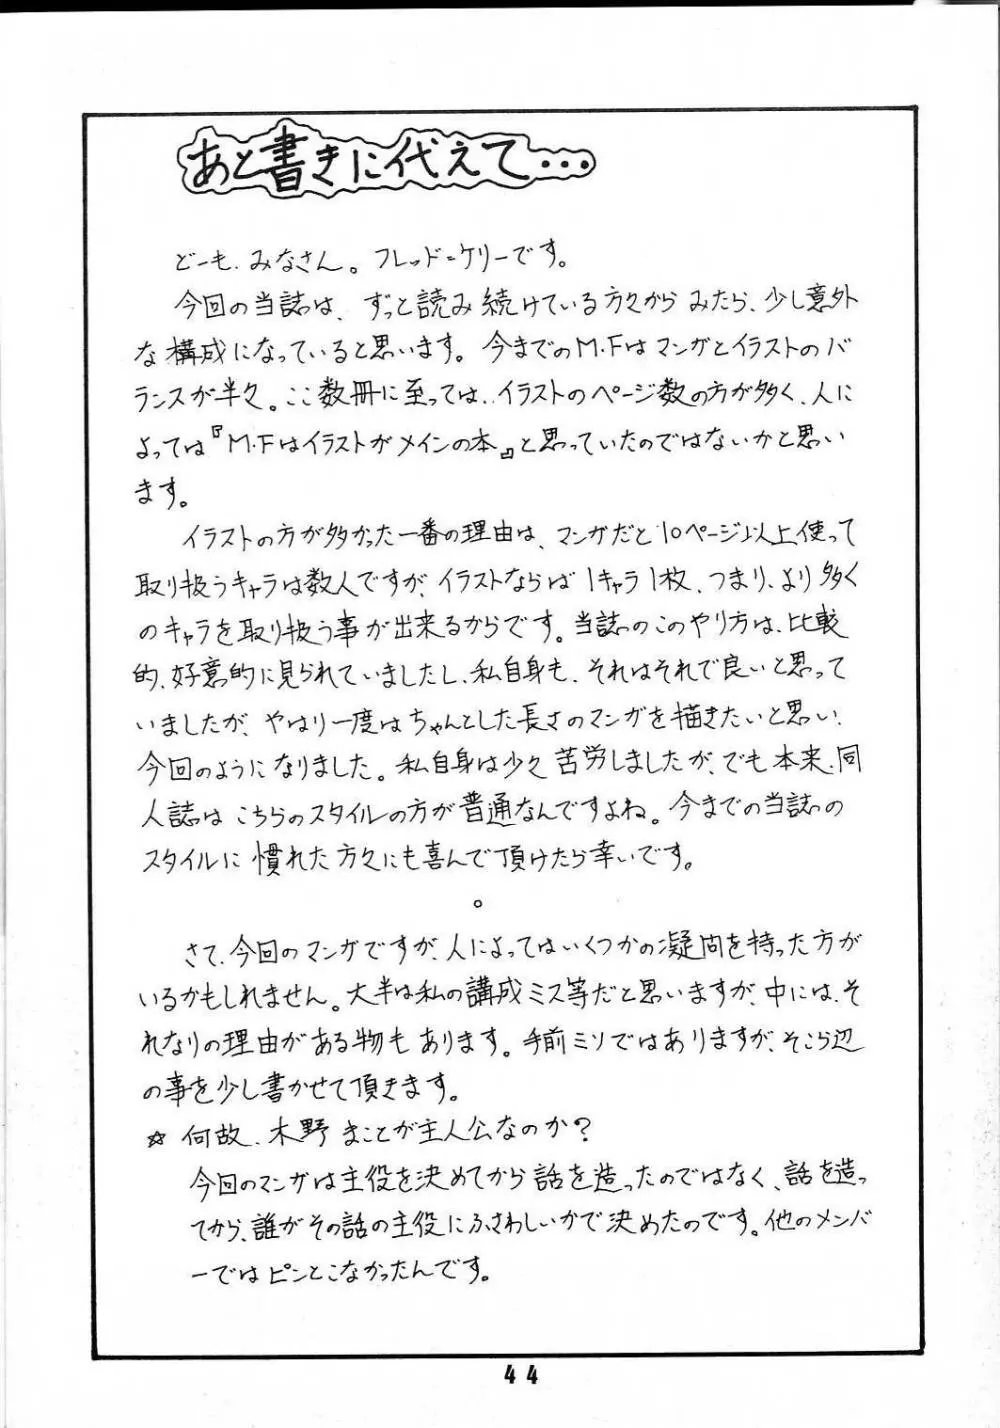 あと書きに代えて…
どーも、みなさん。フレッド=ケリーです。
今回の当誌は、ずっと読み続けている方々からみたら、少し意外
な構成になっていると思います。今までのM.Fはマンガとイラストのバ
ランスが半々。ここ数冊に至っては、イラストのページ数の方が多く、人に
よっては『M.Fはイラストがメインの本』と思っていたのではないかと思い
ます。
イラストの方が多かった一番の理由は、マンガだと10ページ以上使って
取り扱うキャラは数人ですが、イラストならば1キャラ1枚、つまり、より多く
のキャラを取り扱う事が出来るからです。当誌のこのやり方は、比較
的、好意的に見られていましたし、私自身も、それはそれで良いと思って
いましたが、やはり一度はちゃんとした長さのマンガを描きたいと思い、
今回のようになりました。私自身は少々苦労しましたが、でも本来、同
人誌はこちらのスタイルの方が普通なんですよね。今までの当誌の
スタイルに慣れた方々にも喜んで頂けたら幸いです。
。
さて、今回のマンガですが、人によってはいくつかの凝問を持った方が
いるかもしれません。大半は私の講成ミス等だと思いますが、中には、そ
れなりの理由がある物もあります。手前ミソではありますが、そこら辺
の事を少し書かせて頂きます。
☆ 何故、木野まことが主人公なのか?
今回のマンガは主役を決めてから話を造ったのではなく、話を造っ
てから、誰がその話の主役にふさわしいかで決めたのです。他のメンバ
ーではピンとこなかったんです。
44